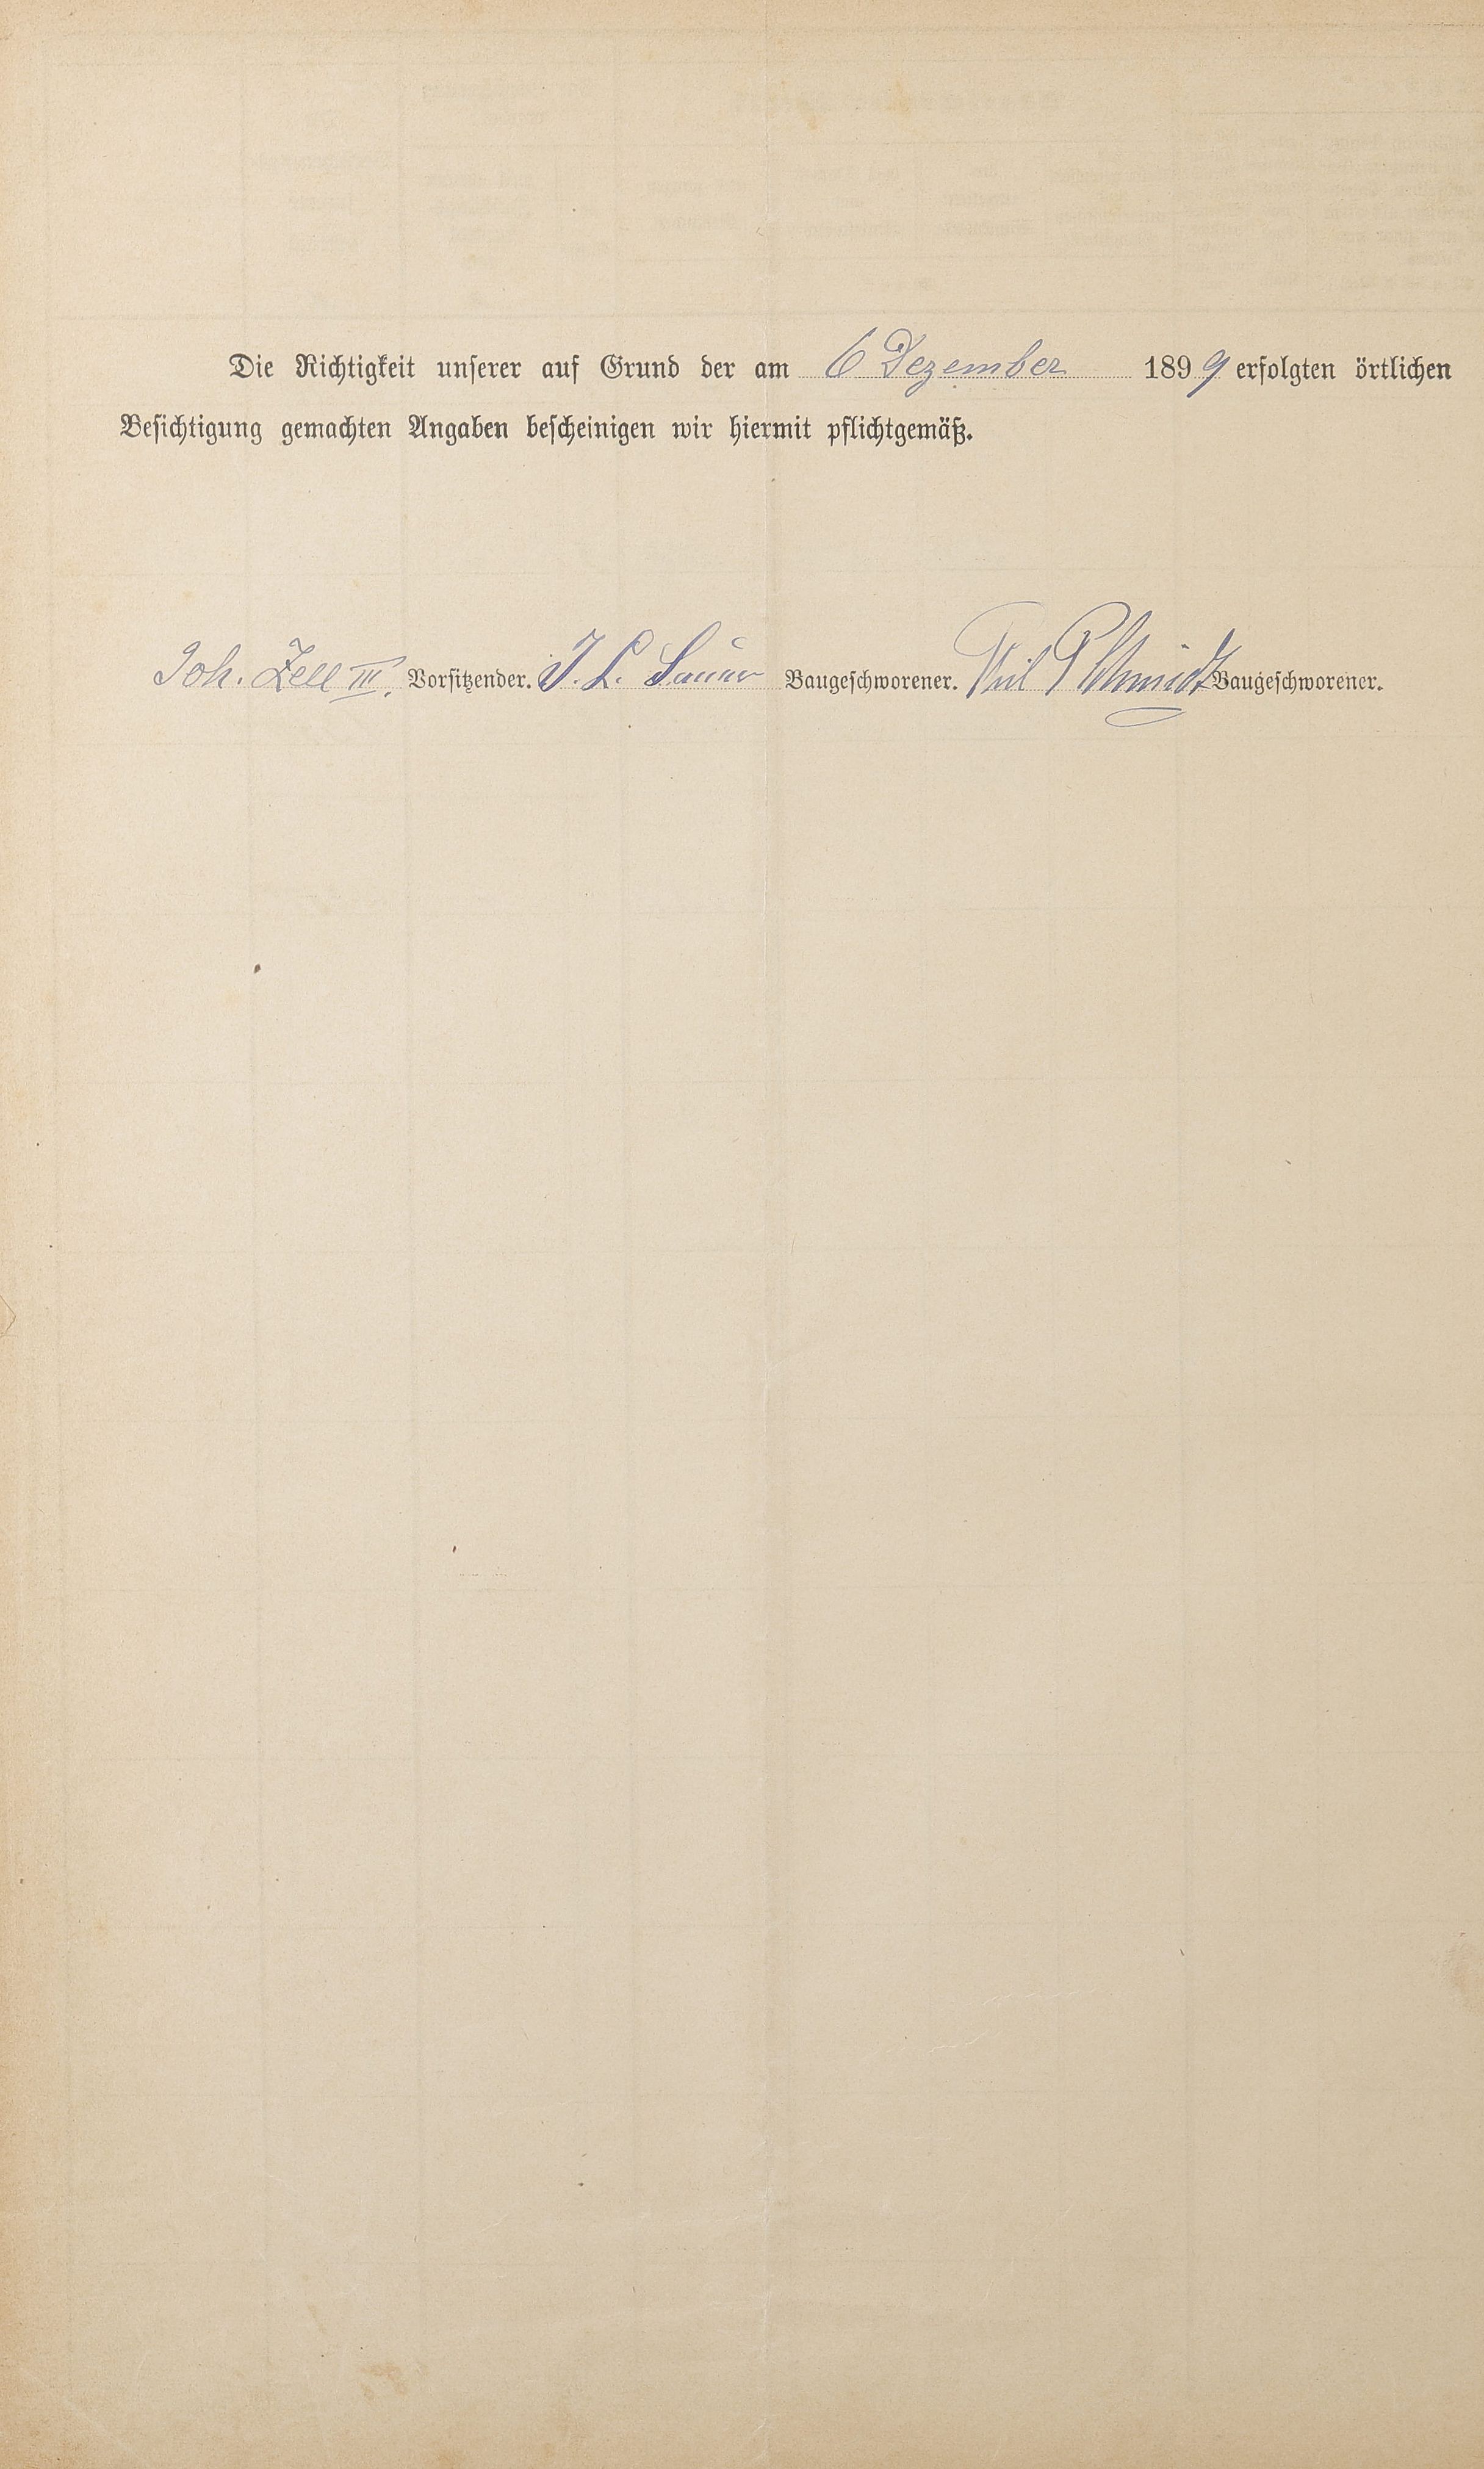 Die Richtigkeit unserer auf Grund der am 6 Dezember 1899 erfolgten örtlichen
Besichtigung gemachten Angaben bescheinigen wir hiermit pflichtgemäß.
Joh. Zell III. Vorsitzender. J. L. Sauer Baugeschworener. Phil P Schmidt Baugeschworener.